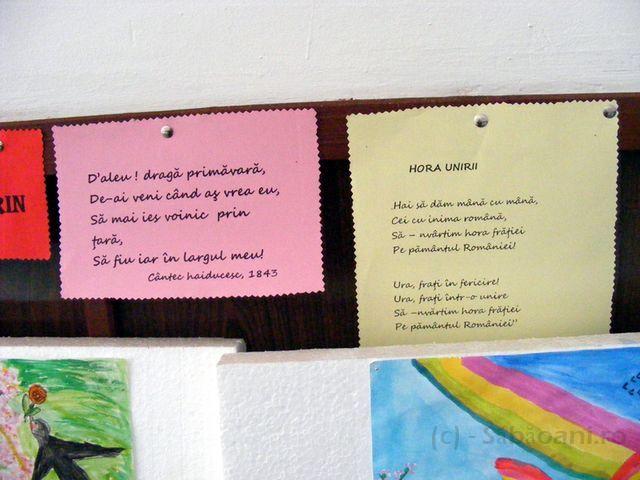 RIN
D'aleu ! dragă primăvară,
De-ai veni când aş vrea eu,
Să mai ies voinic prin
ţară,
Să fiu iar în largul meu!
Cântec haiducesc, 1843
HORA UNIRII
Hai să dăm mână cu mână,
Cei cu inima română,
Să – nvârtim hora frăţiei
Pe pământul României!
Ura, fraţi în fericire!
Ura, fraţi într-o unire
Să –nvârtim hora frăţiei
Pe pământul României"
(c) - Săbăoani.ro